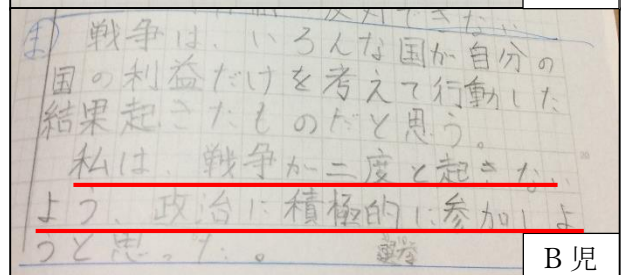 反対できない
ま 戦争は、いろんな国が自分の
国の利益だけを考えて行動した
結果起きたものだと思う。
私は、戦争が二度と起きない
よう、政治に積極的に参加しよ
うと思った。
B 児